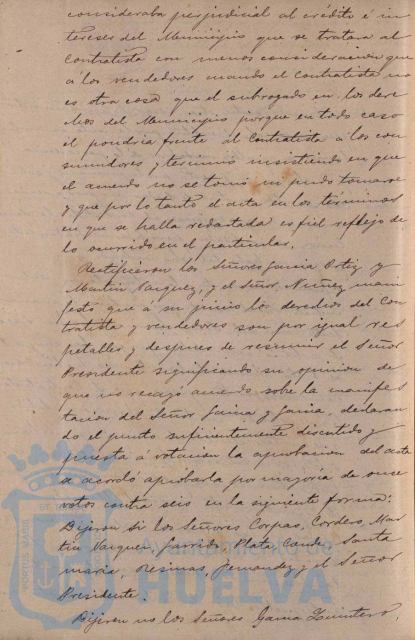 consideraba perjudicial al crédito é in
tereses del Municipio que se tratara al
Contratista con menos consideracion que
á los vendedores cuando el Contratista no
es otra cosa que el subrogado en los dere
chos del Municipio porque en todo caso
el pondria frente al Contratista á los con
sumidores y terminó insistiendo en que
el acuerdo no se tomó ni pudo tomarse
y que por lo tanto el acta en los términos
en que se halla redactada es fiel reflejo de
lo ocurrido en el particular.
Rectificaron los Señores Garcia Ortiz y
Martin Vazquez, y el Señor Nuñez mani
festó que á su juicio los derechos del Con
tratista y vendedores son por igual res
petables y despues de resumir el Señor
Presidente significando su opinion de
que no recayó acuerdo sobre la manifes
tacion del Señor Garcia y Garcia, declaran
do el punto suficientemente discutido y
puesta á votacion la aprobacion del acta
se acordó aprobarla por mayoria de once
votos contra seis en la siguiente forma:
Dijeron Si los Señores Corpas, Cordero, Mar
tin Vazquez, Garrido, Plata, Conde, Santa
maria, Resinas, Fernandez y el Señor
Presidente.
Dijeron no los Señores Garcia Quintero,
PORTUS MARIS
Ayuntamiento de
HUELVA